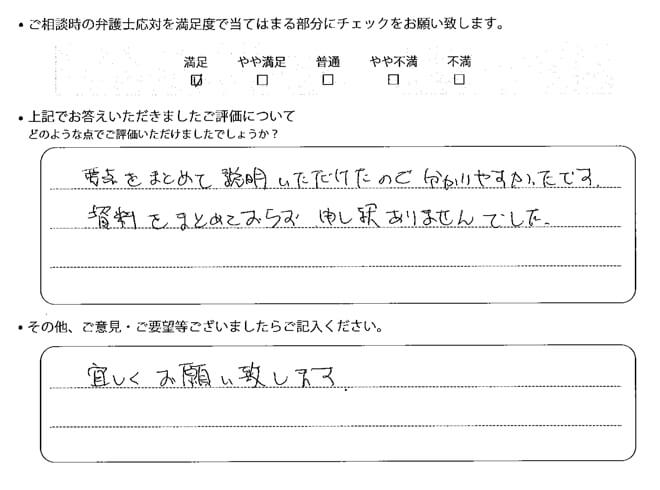 • ご相談時の弁護士応対を満足度で当てはまる部分にチェックをお願い致します。
満足 やや満足 普通 やや不満 不満
☑ □ □ □ □
• 上記でお答えいただきましたご評価について
どのような点でご評価いただけましたでしょうか？
要点をまとめて説明いただけたので分かりやすかったです。
資料をまとめておらず申し訳ありませんでした。
• その他、ご意見・ご要望等ございましたらご記入ください。
宜しくお願い致します.